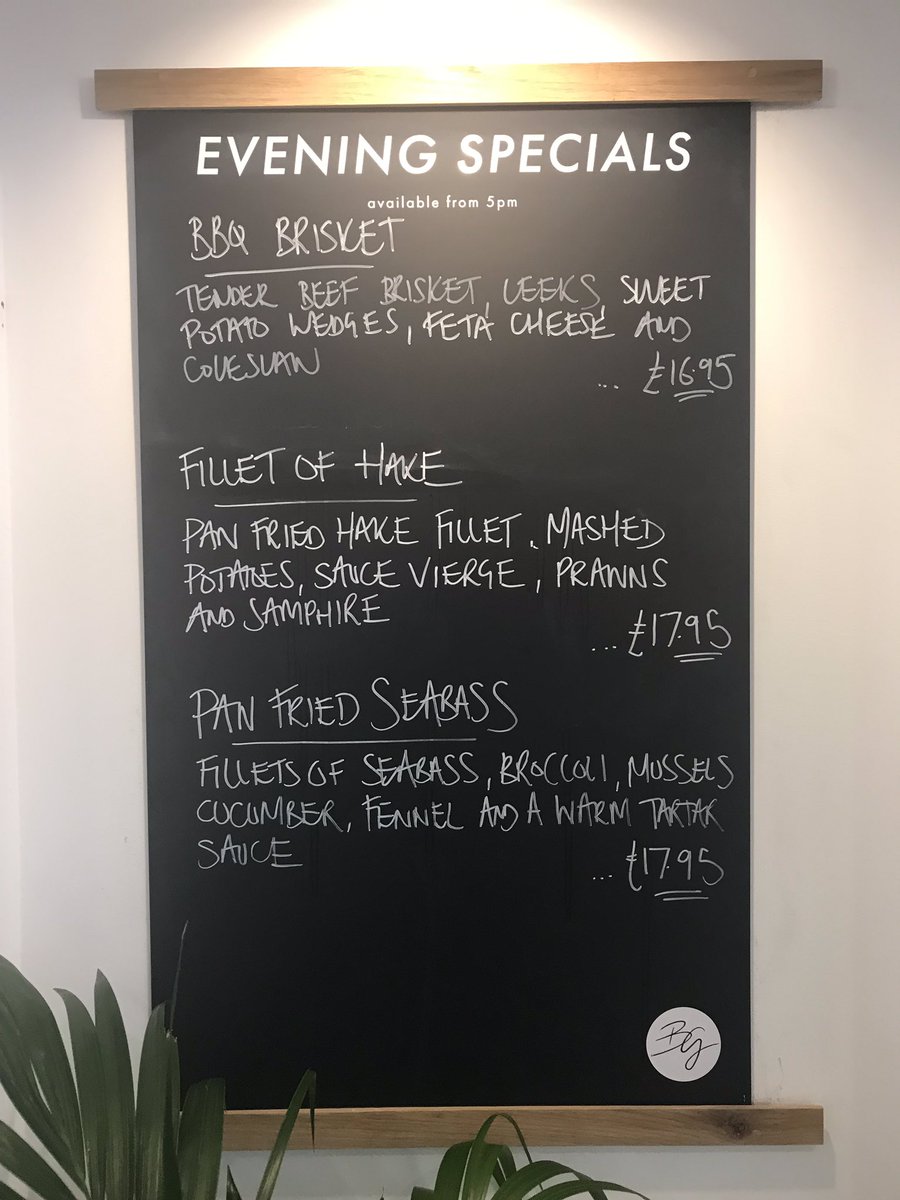 EVENING SPECIALS
available from 5pm
BBQ BRISKET
TENDER BEEF BRISKET, LEEKS, SWEET
POTATO WEDGES, FETA CHEESE AND
COLESLAW
... £16.95
FILLET OF HAKE
PAN FRIED HAKE FILLET, MASHED
POTATOES, SAUCE VIERGE, PRAWNS
AND SAMPHIRE
... £17.95
PAN FRIED SEABASS
FILLETS OF SEABASS, BROCCOLI, MUSSELS
CUCUMBER, FENNEL AND A WARM TARTAR
SAUCE
... £17.95
BG